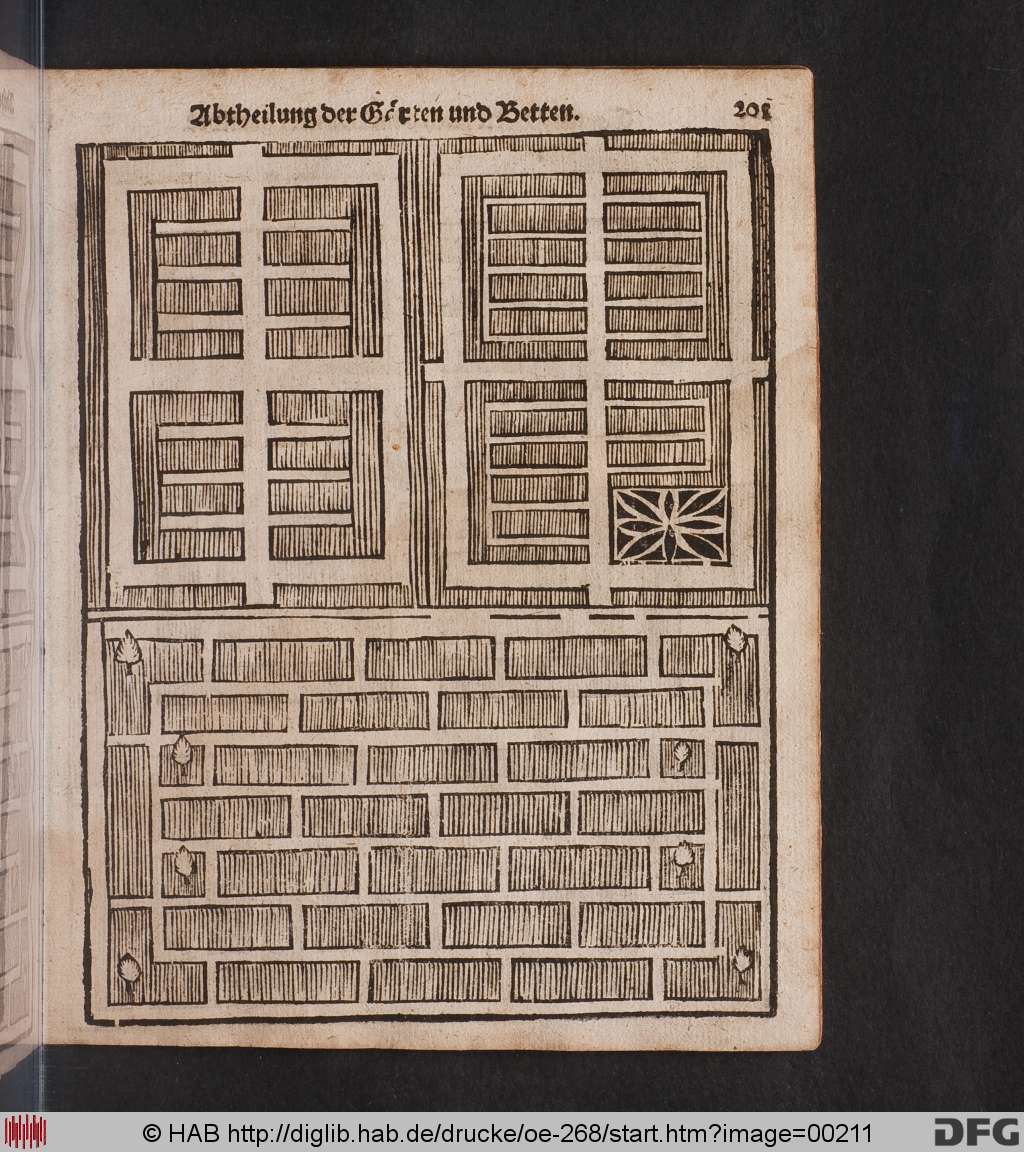 Abtheilung der Gärten und Betten. 201
© HAB http://diglib.hab.de/drucke/oe-268/start.htm?image=00211
DFG